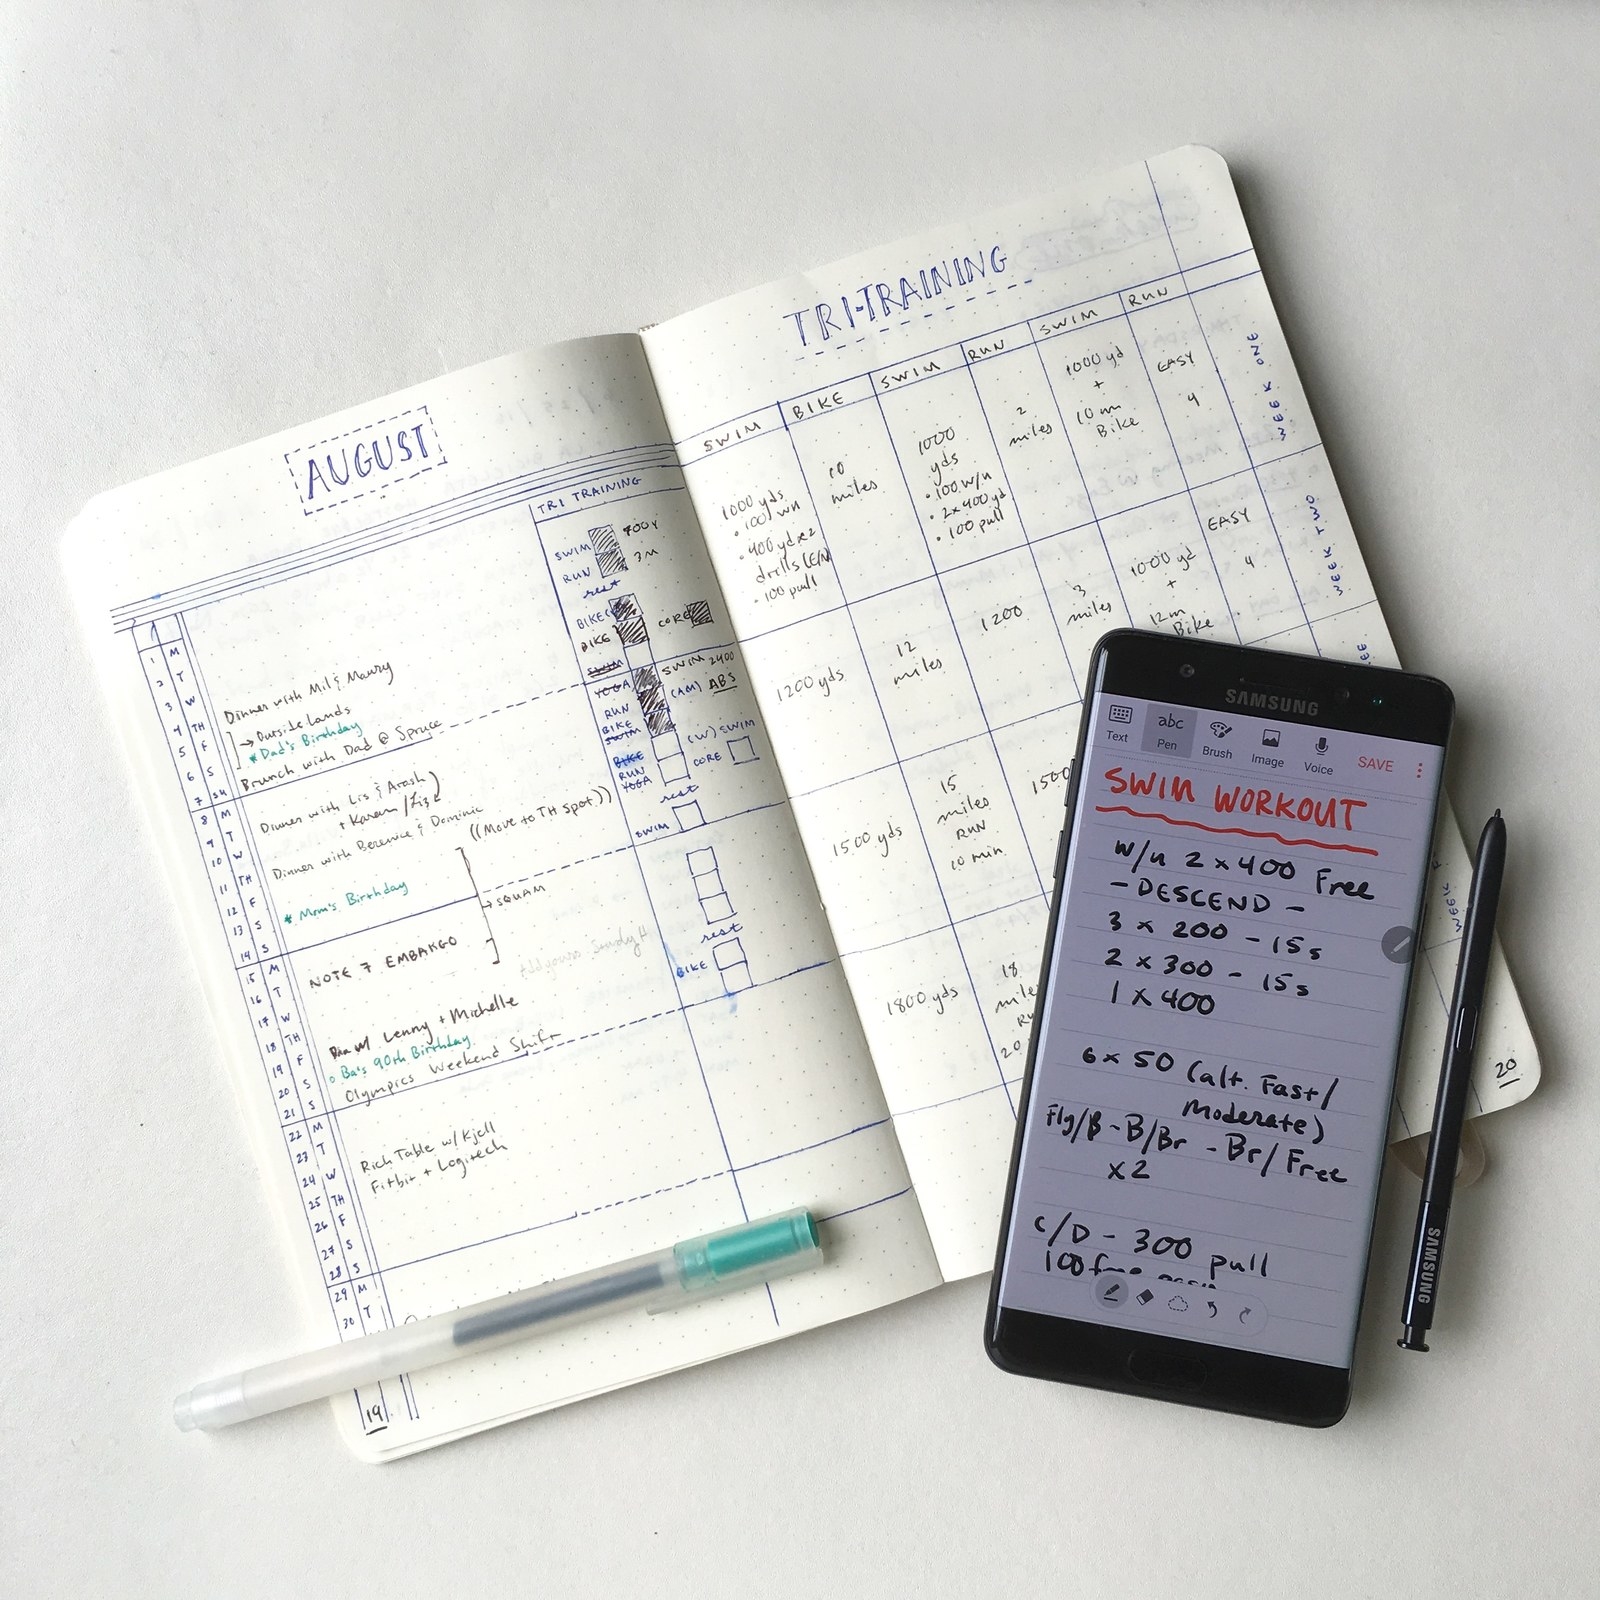 AUGUST
TRI TRAINING
SWIM 700Y
RUN 3M
rest
BIKE
BIKE CORE
SWIM
YOGA SWIM 2400
RUN (AM) ABS
BIKE
SWIM (W) SWIM
BIKE
RUN CORE
YOGA
rest
SWIM
rest
BIKE
1 M
2 T
3 W
4 TH
5 F
6 S
7 SU
8 M
9 T
10 W
11 TH
12 F
13 S
14 S
15 M
16 T
17 W
18 TH
19 F
20 S
21 S
22 M
23 T
24 W
25 TH
26 F
27 S
28 S
29 M
30 T
Dinner with Mil & Maury
→ Outside Lands
* Dad's Birthday
Brunch with Dad @ Spruce
Dinner with Lis & Arash
+ Karen / Liz
Dinner with Berenice & Dominic
((Move to TH spot))
* Mom's Birthday
→ SQUAM
NOTE 7 EMBARGO
Din w/ Lenny + Michelle
Ba's 90th Birthday
Olympics Weekend Shift
Rich Table w/ Kjell
Fitbit + Logitech
19
TRI-TRAINING
SWIM BIKE SWIM RUN SWIM RUN
1000 yds
• 100 wu
• 400 yd x2
drills
• 100 pull
10
miles
1000
yds
• 100 w/u
• 2x400yd
• 100 pull
2
miles
1000 yd
+
10 m
Bike
EASY
4
WEEK ONE
1200 yds
12
miles
1200
3
miles
1000 yd
+
12m
Bike
EASY
4
WEEK TWO
1500 yds
15
miles
RUN
10 min
1500
1800 yds
18
20
WEEK
20
SAMSUNG
Text
abc
Pen
Brush
Image
Voice
SAVE
SWIM WORKOUT
W/u 2 x 400 Free
- DESCEND -
3 x 200 - 15s
2 x 300 - 15s
1 x 400
6 x 50 (alt. Fast/
Moderate)
Fly/B - B/Br - Br/Free
x2
C/D - 300 pull
100 free
SAMSUNG